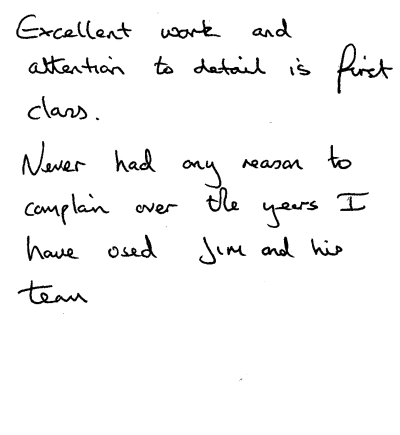 Excellent work and
attention to detail is first
class.
Never had any reason to
complain over the years I
have used Jim and his
team